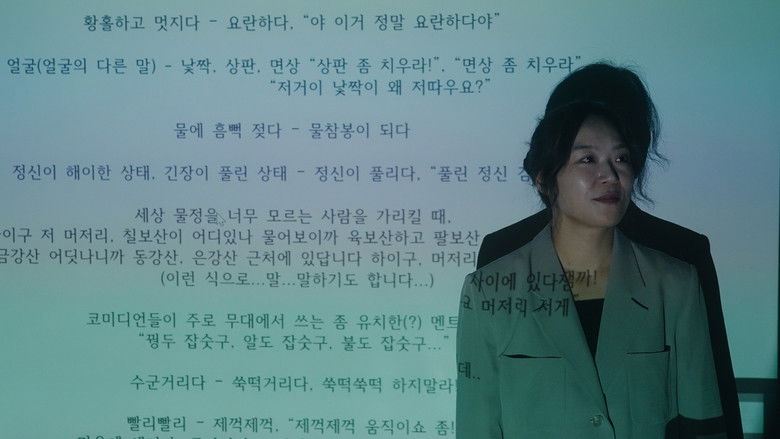 황홀하고 멋지다 - 요란하다, “야 이거 정말 요란하다야”
얼굴(얼굴의 다른 말) - 낯짝, 상판, 면상 “상판 좀 치우라!”, “면상 좀 치우라”
“저거이 낯짝이 왜 저따우요?”
물에 흠뻑 젖다 - 물참봉이 되다
정신이 해이한 상태, 긴장이 풀린 상태 - 정신이 풀리다, “풀린 정신
세상 물정을 너무 모르는 사람을 가리킬 때,
저 머저리, 칠보산이 어디있나 물어보이까 육보산하고 팔보산 사이에 있다잼까!
어딧나니까 동강산, 은강산 근처에 있답니다 하이구, 머저리 머저리 저게”
(이런 식으로...말...말하기도 합니다...)
코미디언들이 주로 무대에서 쓰는 좀 유치한(?) 멘트
“꿩두 잡숫구, 알도 잡숫구, 불도 잡숫구...”
데..
수군거리다 - 쑥떡거리다, 쑥떡쑥떡 하지말라!
빨리빨리 - 제꺽제꺽, “제꺽제꺽 움직이쇼 좀!